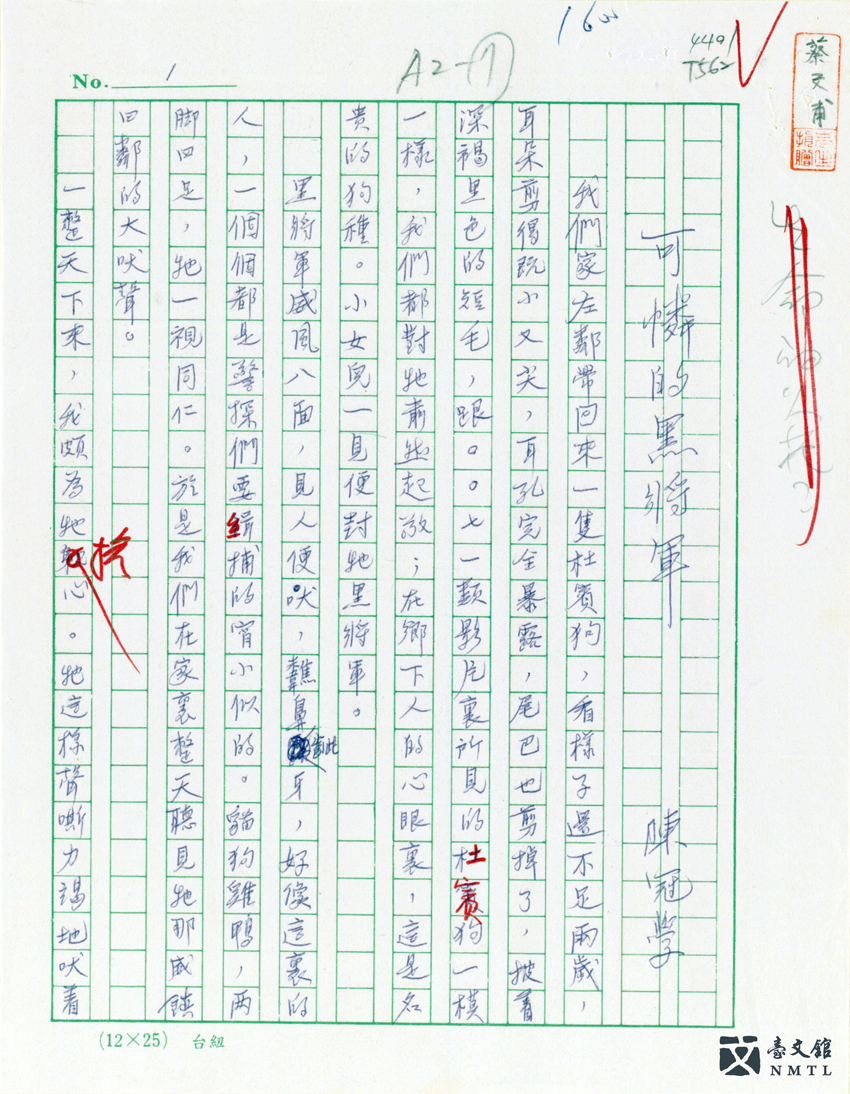 No. 1
A2-(1)
160
4491
T562
蔡文甫
先生
捐贈
可憐的黑將軍
陳冠學
我們家左鄰帶回來一隻杜賓狗，看樣子還不足兩歲，
耳朵剪得既小又尖，耳孔完全暴露，尾巴也剪掉了，披着
深褐黑色的短毛，跟。。七一顆影片裏所見的杜賓狗一模
一樣，我們都對牠肅然起敬；在鄉下人的心眼裏，這是名
貴的狗種。小女兒一見便封牠黑將軍。
黑將軍威風八面，見人便吠，齜牙，好像這裏的
人，一個個都是警探們要緝捕的宵小似的。貓狗雞鴨，两
脚四足，牠一視同仁。於是我們在家裏整天聽見牠那威鎮
四鄰的大吠聲。
一整天下來，我頗為牠擔心。牠這樣聲嘶力竭地吠着
(12×25) 台紐
臺文館
NMTL